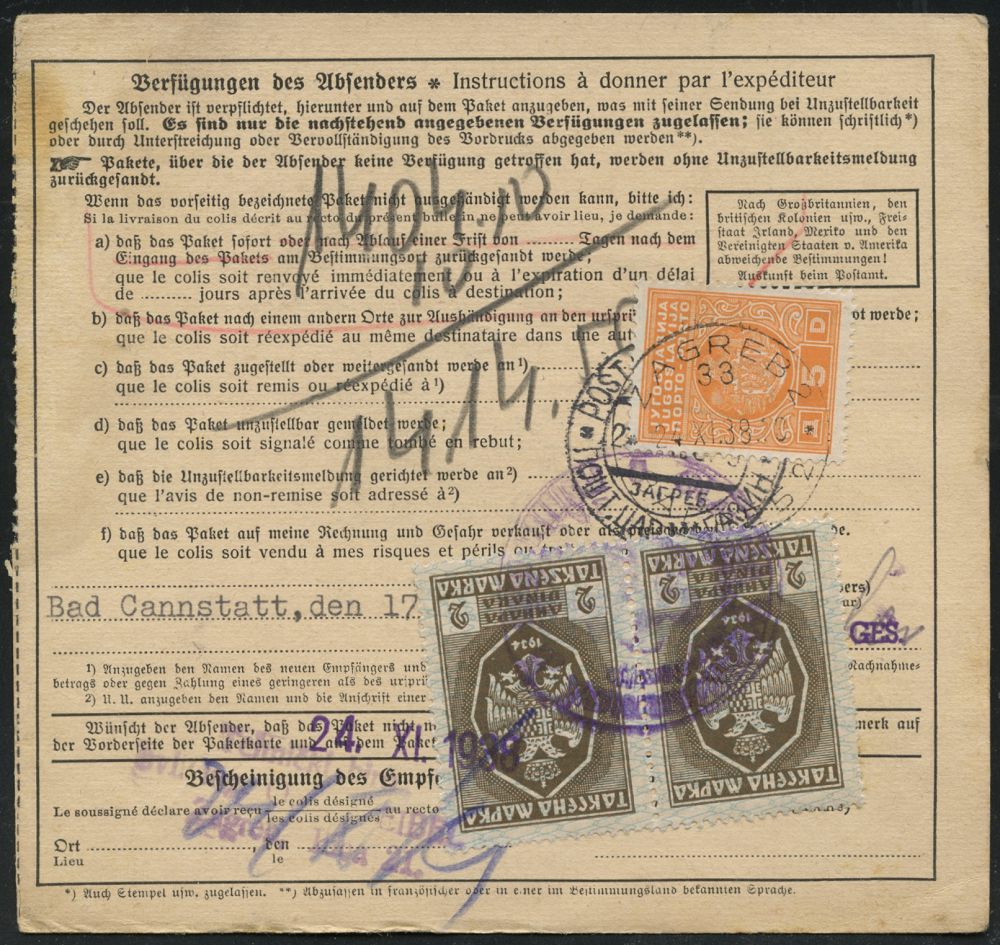 Verfügungen des Absenders * Instructions à donner par l'expéditeur
Der Absender ist verpflichtet, hierunter und auf dem Paket anzugeben, was mit seiner Sendung bei Unzustellbarkeit
geschehen soll. Es sind nur die nachstehend angegebenen Verfügungen zugelassen; sie können schriftlich*)
oder durch Unterstreichung oder Vervollständigung des Vordrucks abgegeben werden**).
Pakete, über die der Absender keine Verfügung getroffen hat, werden ohne Unzustellbarkeitsmeldung
zurückgesandt.
Wenn das vorseitig bezeichnete Paket nicht ausgehändigt werden kann, bitte ich:
Si la livraison du colis décrit au recto du présent bulletin ne peut avoir lieu, je demande:
Nach Großbritannien, den
britischen Kolonien usw., Frei-
staat Irland, Mexiko und den
Vereinigten Staaten v. Amerika
abweichende Bestimmungen!
Auskunft beim Postamt.
a) daß das Paket sofort oder nach Ablauf einer Frist von ......... Tagen nach dem
Eingang des Pakets am Bestimmungsort zurückgesandt werde;
que le colis soit renvoyé immédiatement ou à l'expiration d'un délai
de .......... jours après l'arrivée du colis à destination;
b) daß das Paket nach einem andern Orte zur Aushändigung an den urspr
ot werde;
que le colis soit réexpédié au même destinataire dans une aut
c) daß das Paket zugestellt oder weitergesandt werde an¹)
que le colis soit remis ou réexpédié à¹)
d) daß das Paket unzustellbar gemeldet werde;
que le colis soit signalé comme tombé en rebut;
e) daß die Unzustellbarkeitsmeldung gerichtet werde an²)
que l'avis de non-remise soit adressé à²)
f) daß das Paket auf meine Rechnung und Gefahr verkauft oder
de.
que le colis soit vendu à mes risques et périls ou
ЈУГОСЛАВИЈА
JUGOSLAVIJA
ПОРТО PORTO
5 D
ZAGREB 2
33
24 XI.38
ЗАГРЕБ
Bad Cannstatt,den 17
GES.
ТАКСЕНА МАРКА
2 2
1934
ДИНАРА
DINARA
TAKSENA MARKA
ТАКСЕНА МАРКА
2 2
1934
ДИНАРА
DINARA
TAKSENA MARKA
1) Anzugeben den Namen des neuen Empfängers und
Nachnahme-
betrags oder gegen Zahlung eines geringeren als des urspr
2) U. U. anzugeben den Namen und die Anschrift einer
Wünscht der Absender, daß das Paket nicht
merk auf
der Vorderseite der Paketkarte und auf dem Paket
24. XI. 1938
Bescheinigung des Empf
Le soussigné déclare avoir reçu
le colis désigné
les colis désignés
au recto
Ort
, den
Lieu
le
*) Auch Stempel usw. zugelassen. **) Abzufassen in französischer oder in einer im Bestimmungsland bekannten Sprache.